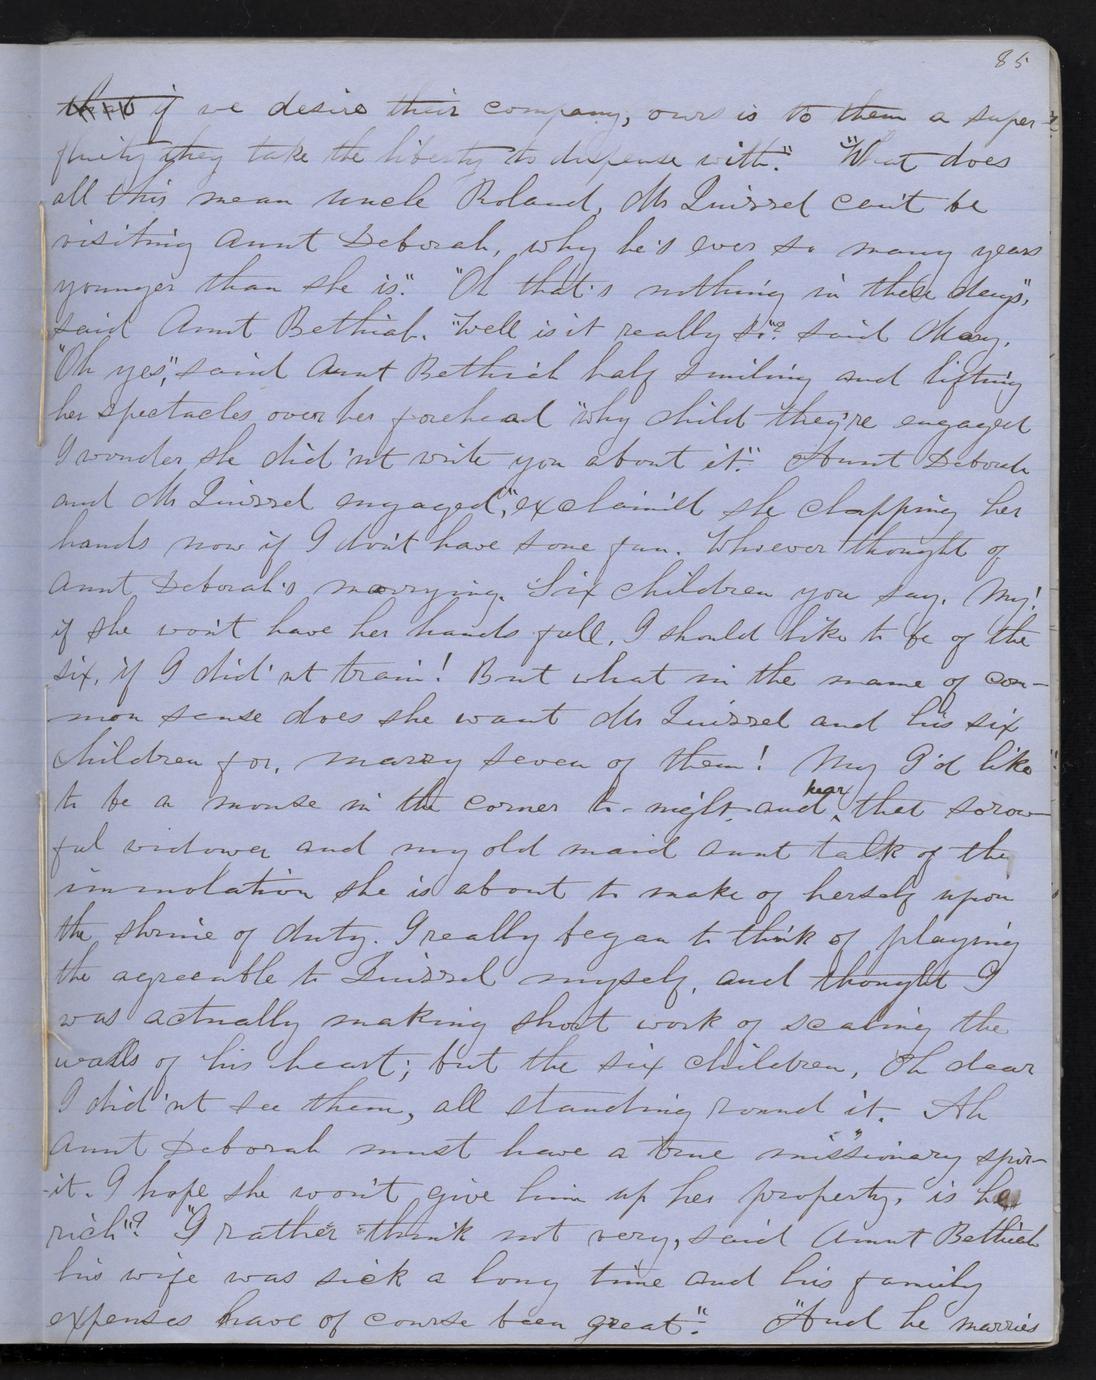 85
that if we desire their company, ours is to them a super-
fluity they take the liberty to dispense with." "What does
all this mean uncle Roland, Mr Quirrel can't be
visiting Aunt Deborah, why he's ever so many years
younger than she is." "Oh that's nothing in these days",
said Aunt Bethiah. "Well is it really so"? said Mary.
"Oh yes", said Aunt Bethiah half smiling and lifting
her spectacles over her forehead "why child they're engaged
I wonder she did'nt write you about it." "Aunt Deborah
and Mr Quirrel engaged", exclaim'd she clapping her
hands now if I don't have some fun. Whoever thought of
Aunt Deborah's marrying. Six children you say. My!
if she won't have her hands full, I should like to be of the
six, if I did'nt train! But what in the name of com-
mon sense does she want Mr Quirrel and his six
children for, marry seven of them! My I'd like
to be a mouse in the corner to-night and hear that sorow-
ful widower and my old maid aunt talk of the
immolation she is about to make of herself upon
the shrine of duty. I really began to think of playing
the agreeable to Quirrel myself, and thought I
was actually making short work of scaling the
walls of his heart; but the six children, Oh dear
I did'nt see them, all standing round it. Ah
Aunt Deborah must have a true missionary spir-
it. I hope she won't give him up her property, is he
rich"? "I rather think not very, said Aunt Bethiah
his wife was sick a long time and his family
expenses have of course been great." "And he marries